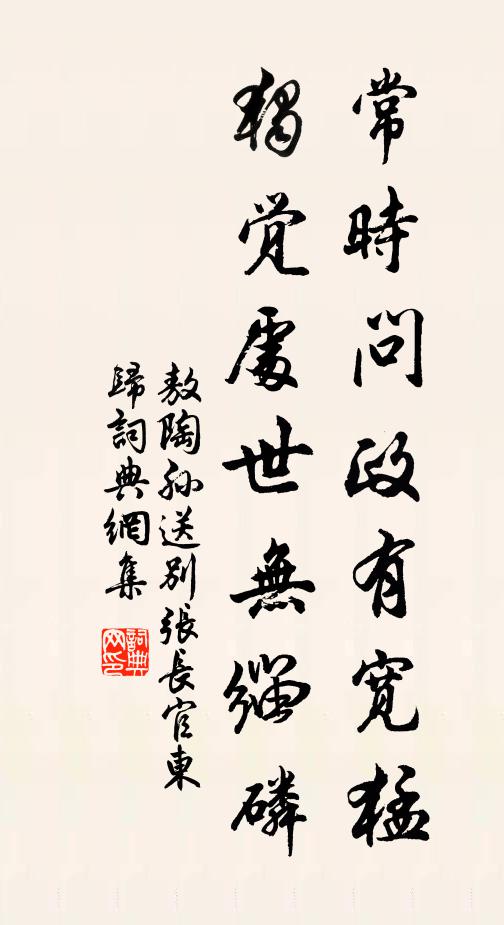 常時問政有寬猛
獨覺處世無緇磷
敖陶孫送别張長官東
歸詞典網集
詞典网印